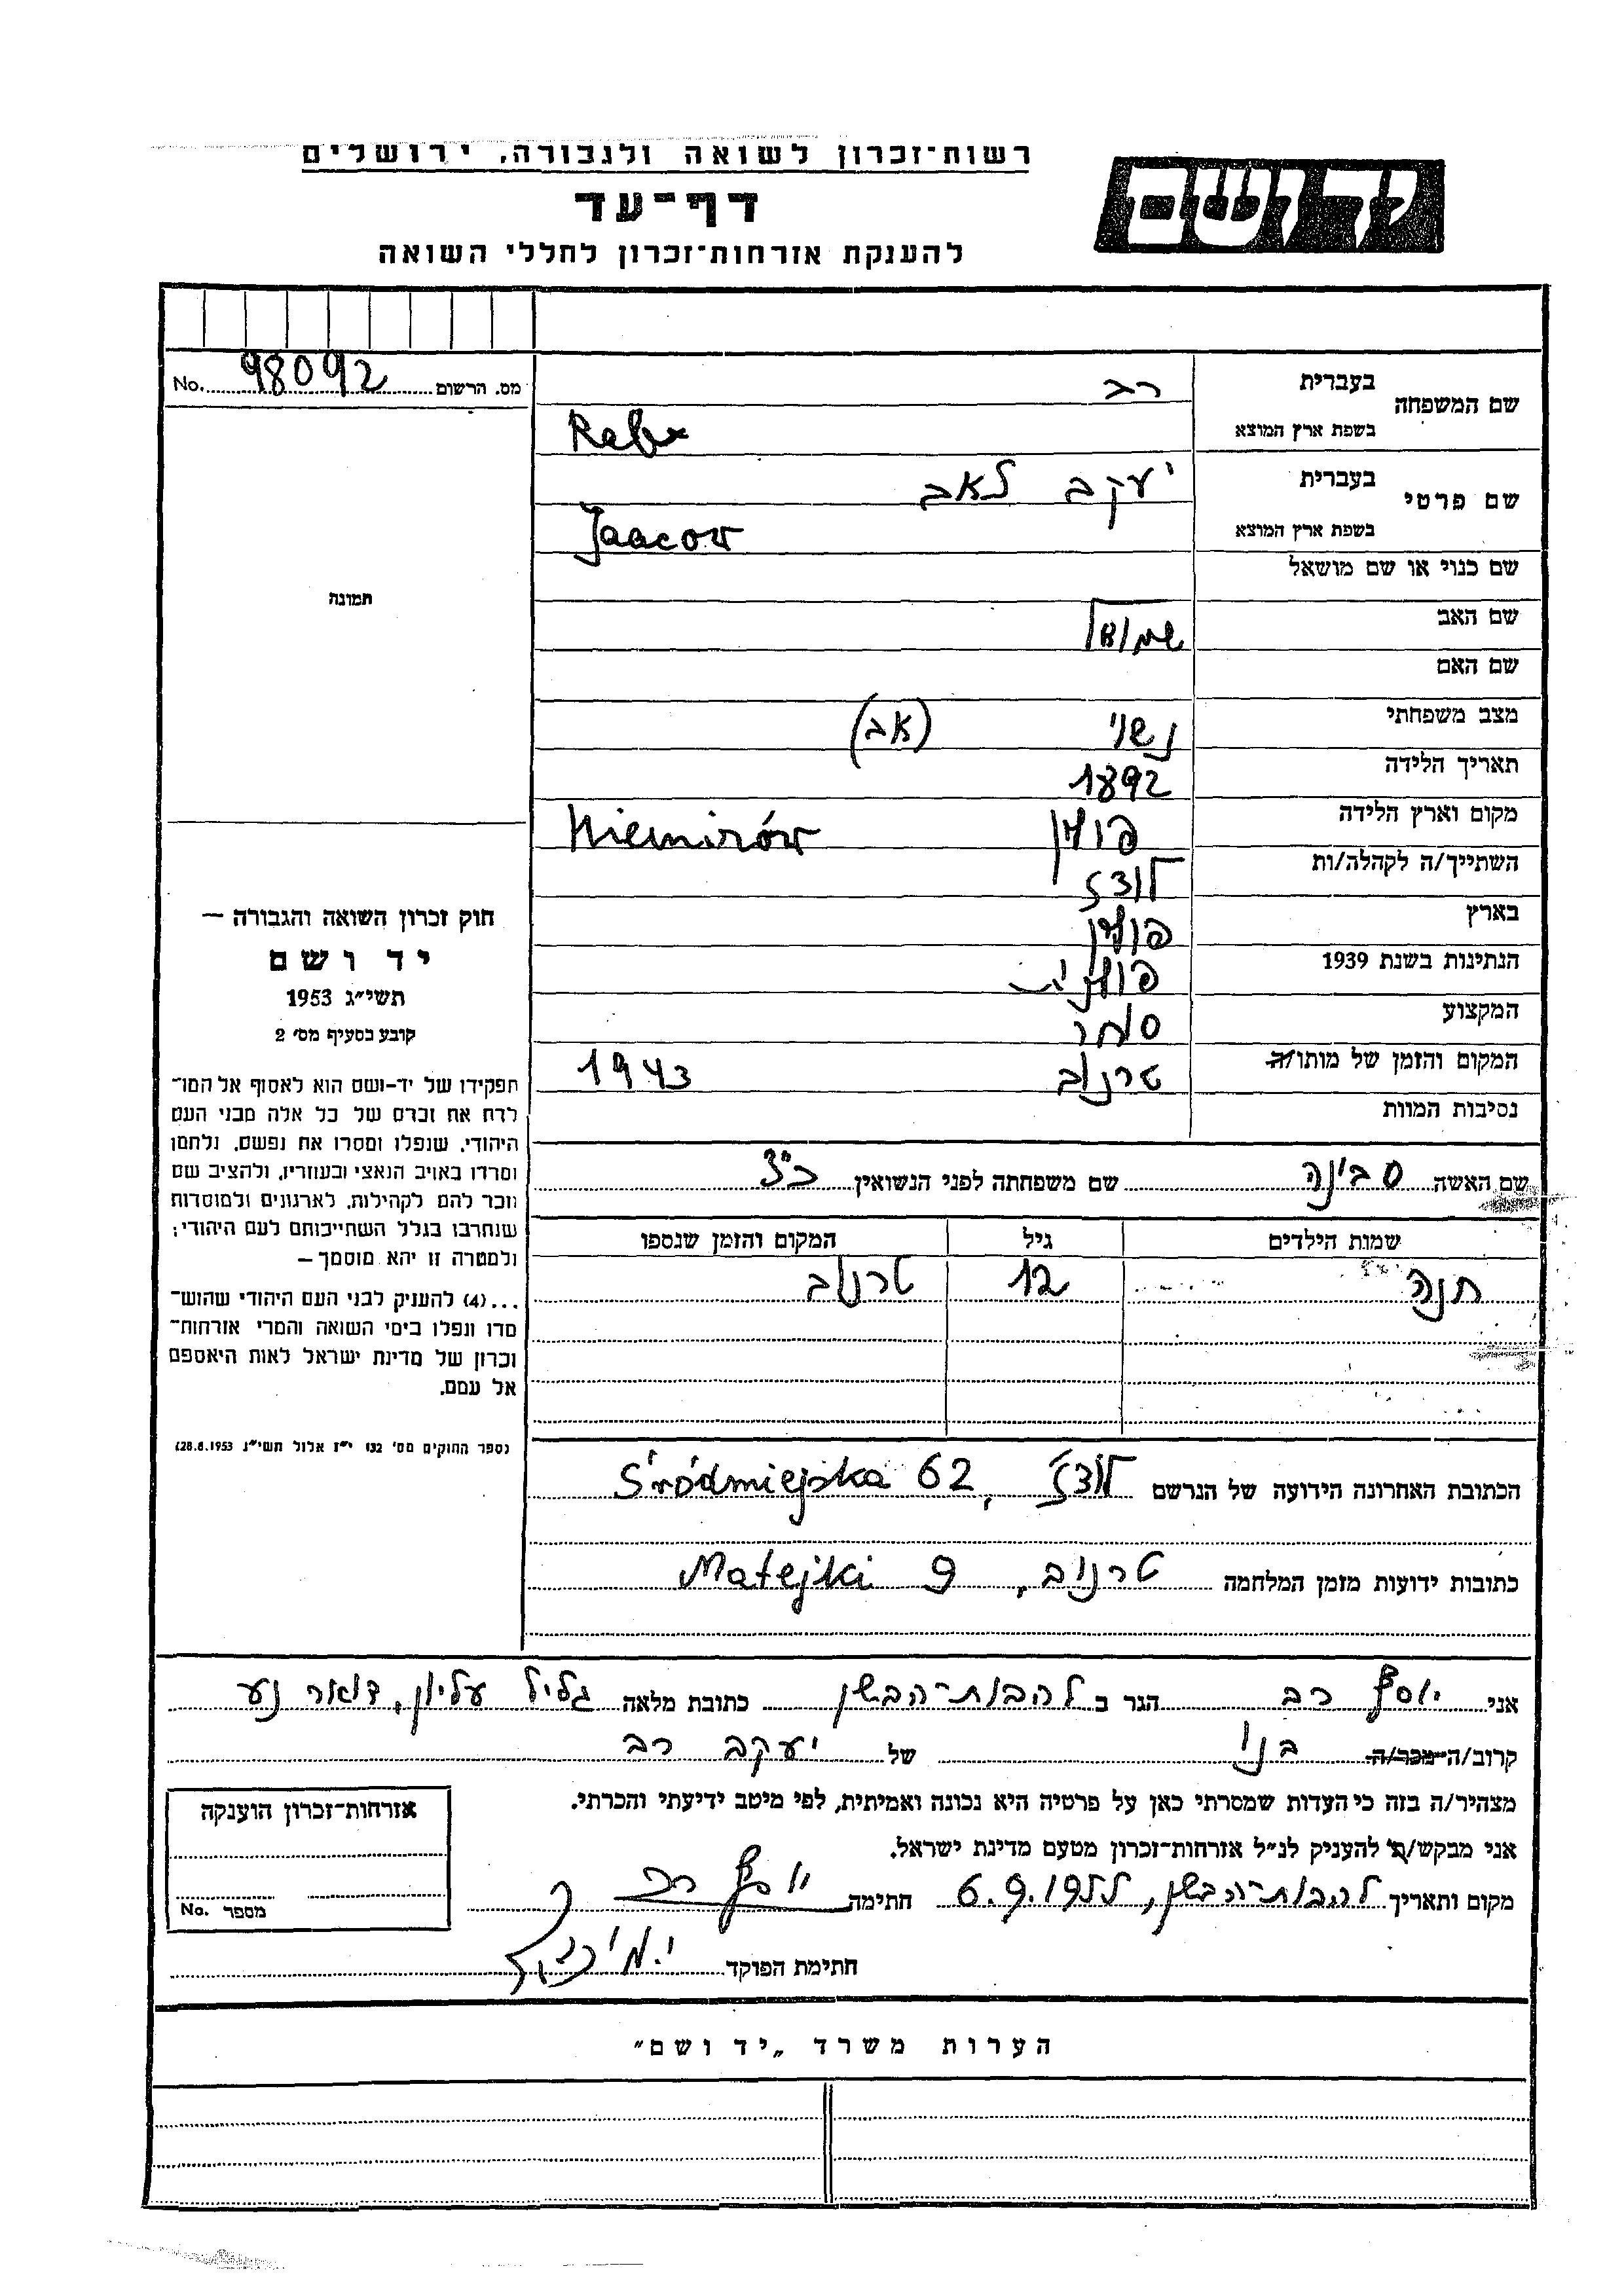 רשות־זכרון לשואה ולגבורה, ירושלים
יד ושם
דף־עד
להענקת אזרחות־זכרון לחללי השואה
מס. הרשום 98092 No.
שם המשפחה
בעברית רב
בשפת ארץ המוצא Rabx
שם פרטי
בעברית יעקב לאב
בשפת ארץ המוצא Jaacow
שם כנוי או שם מושאל
שם האב שמואל
שם האם
מצב משפחתי נשוי (אב)
תאריך הלידה 1892
מקום וארץ הלידה פולין Niemirów
השתייך/ה לקהלה/ות לודז
בארץ פולין
הנתינות בשנת 1939 פולנית
המקצוע סוחר
המקום והזמן של מותו/ה טרנוב 1943
נסיבות המוות
שם האשה סבינה שם משפחתה לפני הנשואין כ"צ
שמות הילדים גיל המקום והזמן שנספו
חנה 12 טרנוב
הכתובת האחרונה הידועה של הנרשם לודז, Śródmiejska 62
כתובות ידועות מזמן המלחמה טרנוב, Matejki 9
תמונה
חוק זכרון השואה והגבורה —
יד ושם
תשי״ג 1953
קובע בסעיף מס׳ 2
תפקידו של יד-ושם הוא לאסוף אל המו־
לדת את זכרם של כל אלה מבני העם
היהודי, שנפלו ומסרו את נפשם, נלחמו
ומרדו באויב הנאצי ובעוזריו, ולהציב שם
וזכר להם לקהילות, לארגונים ולמוסדות
שנחרבו בגלל השתייכותם לעם היהודי;
ולמטרה זו יהא מוסמך —
...(4) להענק לבני העם היהודי שהוש־
מדו ונפלו בימי השואה והמרי אזרחות־
זכרון של מדינת ישראל לאות היאספם
אל עמם.
(ספר החוקים מס׳ 132 י״ז אלול תשי״ג 28.8.1953)
אני יוסף רב הגר ב להבות־הבשן כתובת מלאה גליל עליון, דואר נע
קרוב/ה מכר/ה בנו של יעקב רב
מצהיר/ה בזה כי העדות שמסרתי כאן על פרטיה היא נכונה ואמיתית, לפי מיטב ידיעתי והכרתי.
אני מבקש/ת להעניק לנ״ל אזרחות־זכרון מטעם מדינת ישראל.
מקום ותאריך להבות־הבשן, 6.9.1955 חתימה יוסף רב
חתימת הפוקד
אזרחות־זכרון הוענקה
מספר No.
הערות משרד „יד ושם"